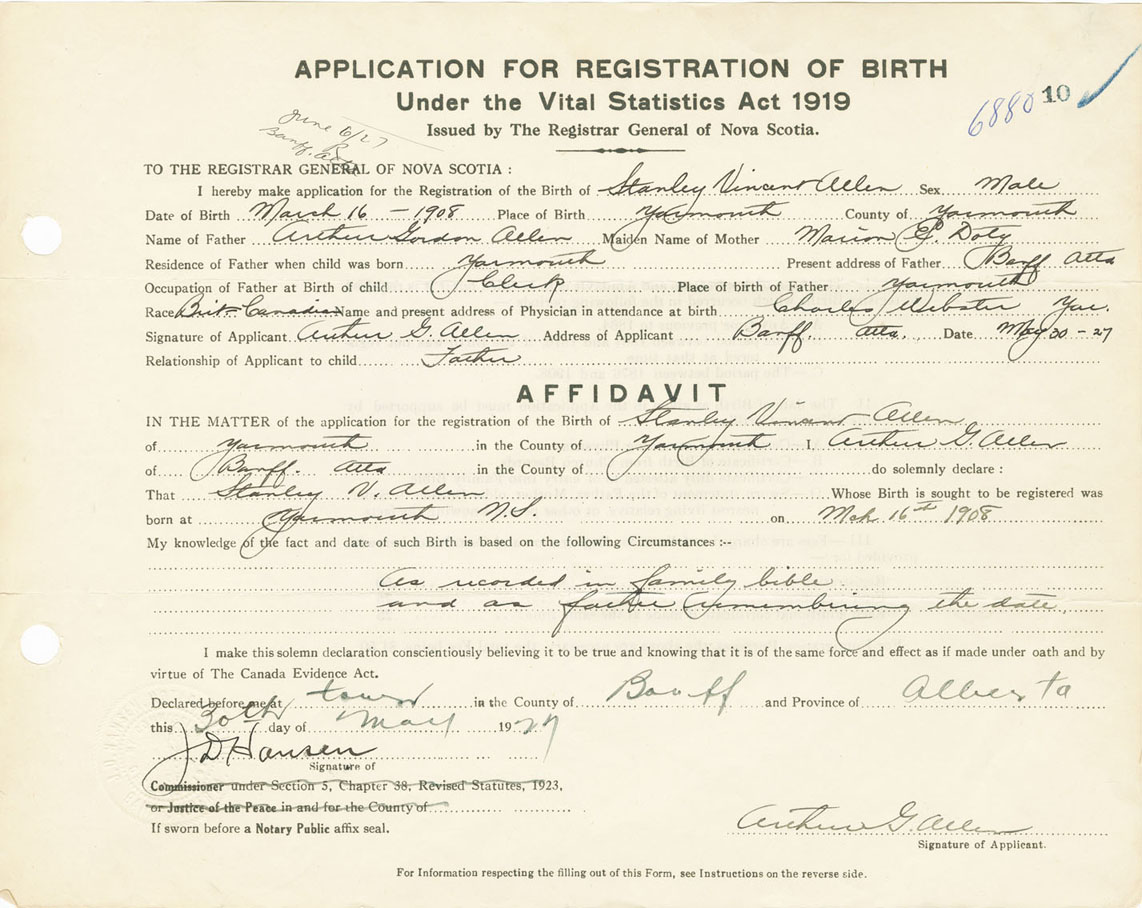 APPLICATION FOR REGISTRATION OF BIRTH
Under the Vital Statistics Act 1919
6880 10
Issued by The Registrar General of Nova Scotia.
June 6/27
Banff. Alta
TO THE REGISTRAR GENERAL OF NOVA SCOTIA :
I hereby make application for the Registration of the Birth of Stanley Vincent Allen Sex Male
Date of Birth March 16 - 1908 Place of Birth Yarmouth County of Yarmouth
Name of Father Arthur Gordon Allen Maiden Name of Mother Marion E. Doty
Residence of Father when child was born Yarmouth Present address of Father Banff Alta
Occupation of Father at Birth of child Clerk Place of birth of Father Yarmouth
Race Brit-Canadian Name and present address of Physician in attendance at birth Charles Webster Yar.
Signature of Applicant Arthur G. Allen Address of Applicant Banff. Alta. Date May 30 - 27
Relationship of Applicant to child Father
AFFIDAVIT
IN THE MATTER of the application for the registration of the Birth of Stanley Vincent Allen
of Yarmouth in the County of Yarmouth I, Arthur G. Allen
of Banff. Alta in the County of do solemnly declare :
That Stanley V. Allen Whose Birth is sought to be registered was
born at Yarmouth N.S. on Mch. 16th 1908
My knowledge of the fact and date of such Birth is based on the following Circumstances :--
As recorded in family bible.
and as father remembering the date.
I make this solemn declaration conscientiously believing it to be true and knowing that it is of the same force and effect as if made under oath and by
virtue of The Canada Evidence Act.
Declared before me at town in the County of Banff and Province of Alberta
this 30th day of May 1927
J D Hansen
Signature of
Commissioner under Section 5, Chapter 38, Revised Statutes, 1923,
or Justice of the Peace in and for the County of
If sworn before a Notary Public affix seal.
Arthur G. Allen
Signature of Applicant.
For Information respecting the filling out of this Form, see Instructions on the reverse side.